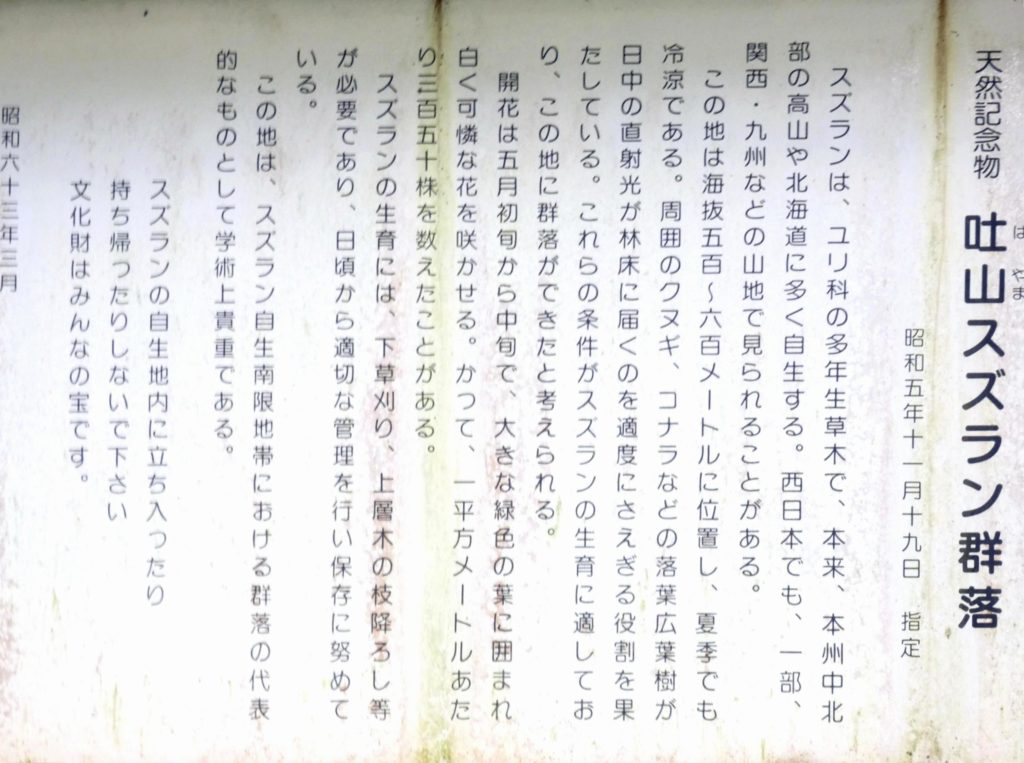 天然記念物　吐山スズラン群落
はやま
昭和五年十一月十九日　指定
スズランは、ユリ科の多年生草木で、本来、本州中北
部の高山や北海道に多く自生する。西日本でも、一部、
関西・九州などの山地で見られることがある。
この地は海抜五百～六百メートルに位置し、夏季でも
冷涼である。周囲のクヌギ、コナラなどの落葉広葉樹が
日中の直射光が林床に届くのを適度にさえぎる役割を果
たしている。これらの条件がスズランの生育に適してお
り、この地に群落ができたと考えられる。
開花は五月初旬から中旬で、大きな緑色の葉に囲まれ
白く可憐な花を咲かせる。かつて、一平方メートルあた
り三百五十株を数えたことがある。
スズランの生育には、下草刈り、上層木の枝降ろし等
が必要であり、日頃から適切な管理を行い保存に努めて
いる。
この地は、スズラン自生南限地帯における群落の代表
的なものとして学術上貴重である。
スズランの自生地内に立ち入つたり
持ち帰つたりしないで下さい
文化財はみんなの宝です。
昭和六十三年三月